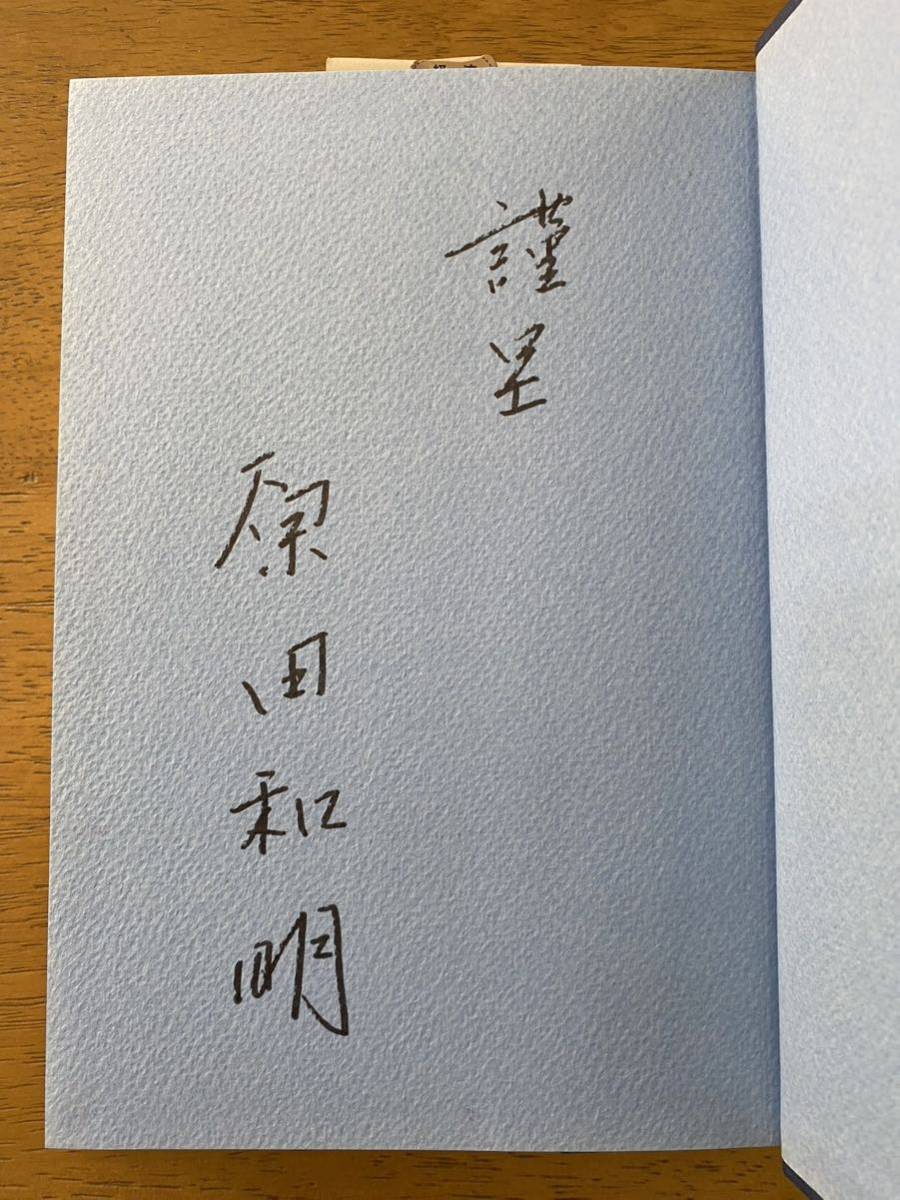 謹呈
原田和明